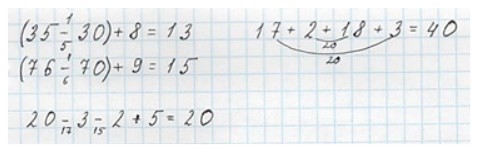 (35 - 30) + 8 = 13
1
5
(76 - 70) + 9 = 15
1
6
20 - 3 - 2 + 5 = 20
17 15
17 + 2 + 18 + 3 = 40
20
20